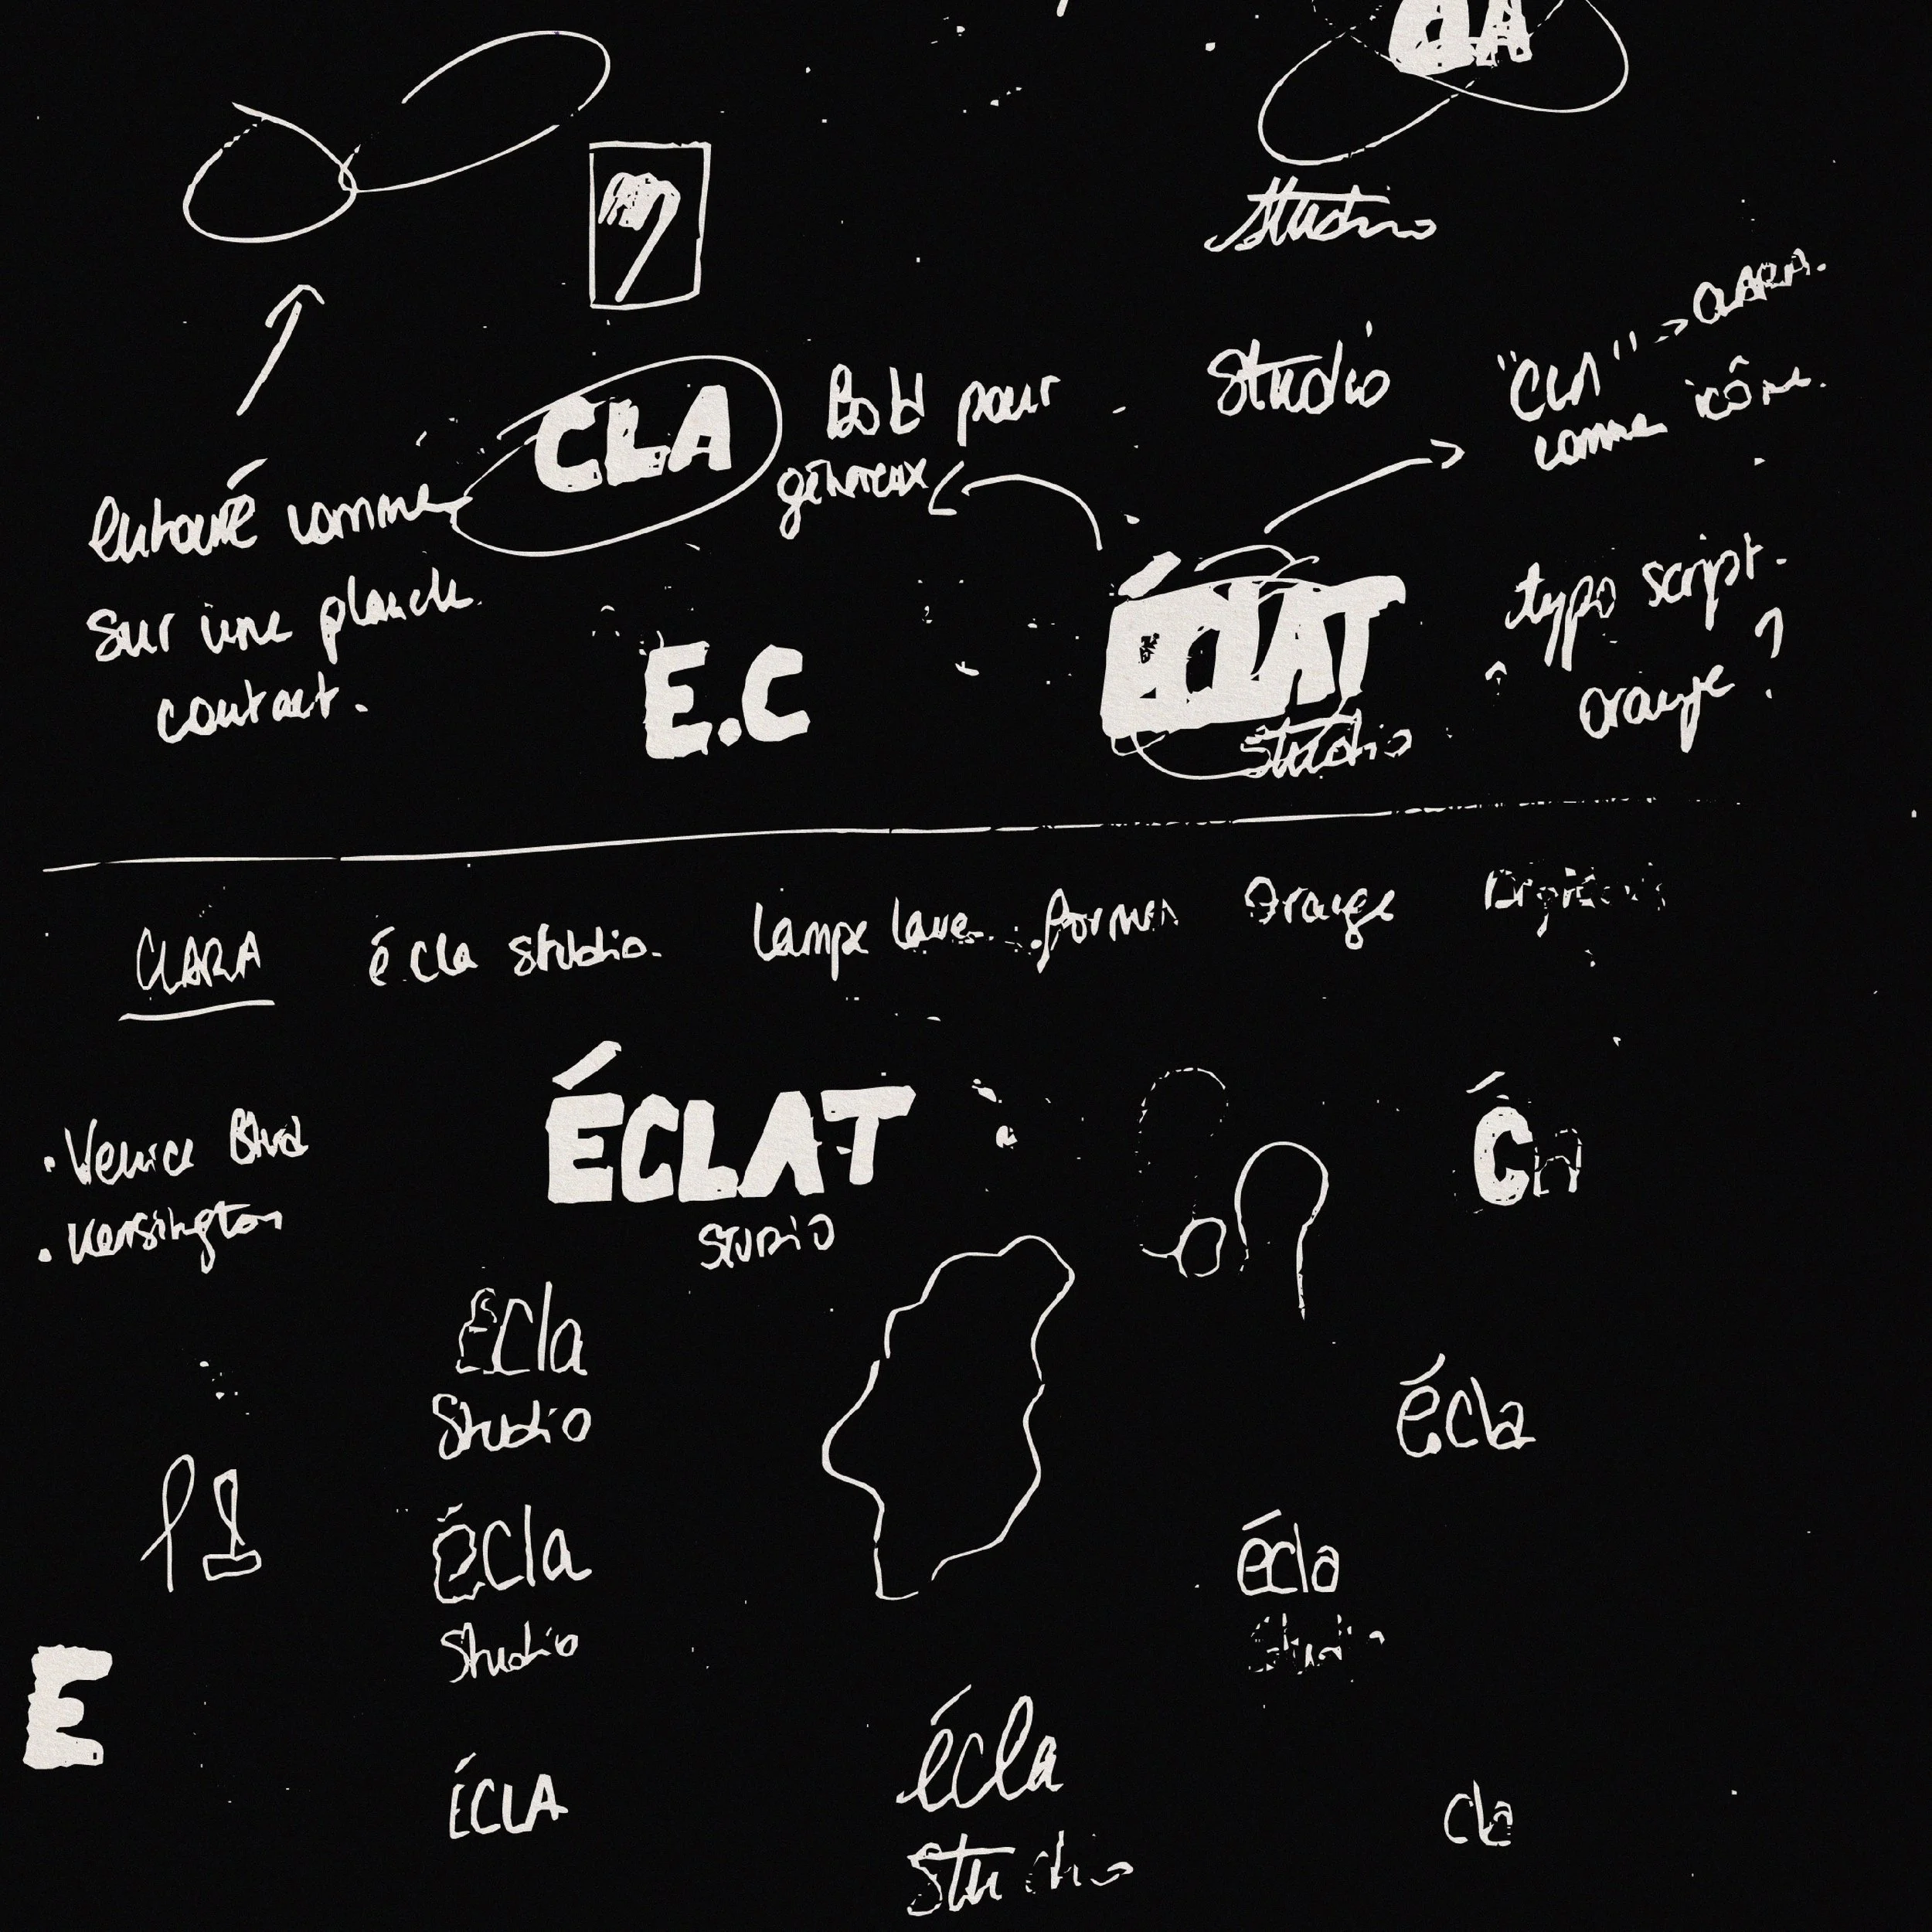 CLA
Studio
Studio
"CLA" -> CLARA.
comme icône.
CLA
Bold pour
généreux
entouré comme
sur une planche
contact.
E.C
ÉCLAT
Studio
typo script.
orange ?
CLARA
écla studio.
Lampe lave
formes
Orange
ÉCLAT
STUDIO
• Venice Blvd
• Kensington
Écla
Studio
écla
écla
Studio
écla
Studio
E
ÉCLA
écla
Studio
cla